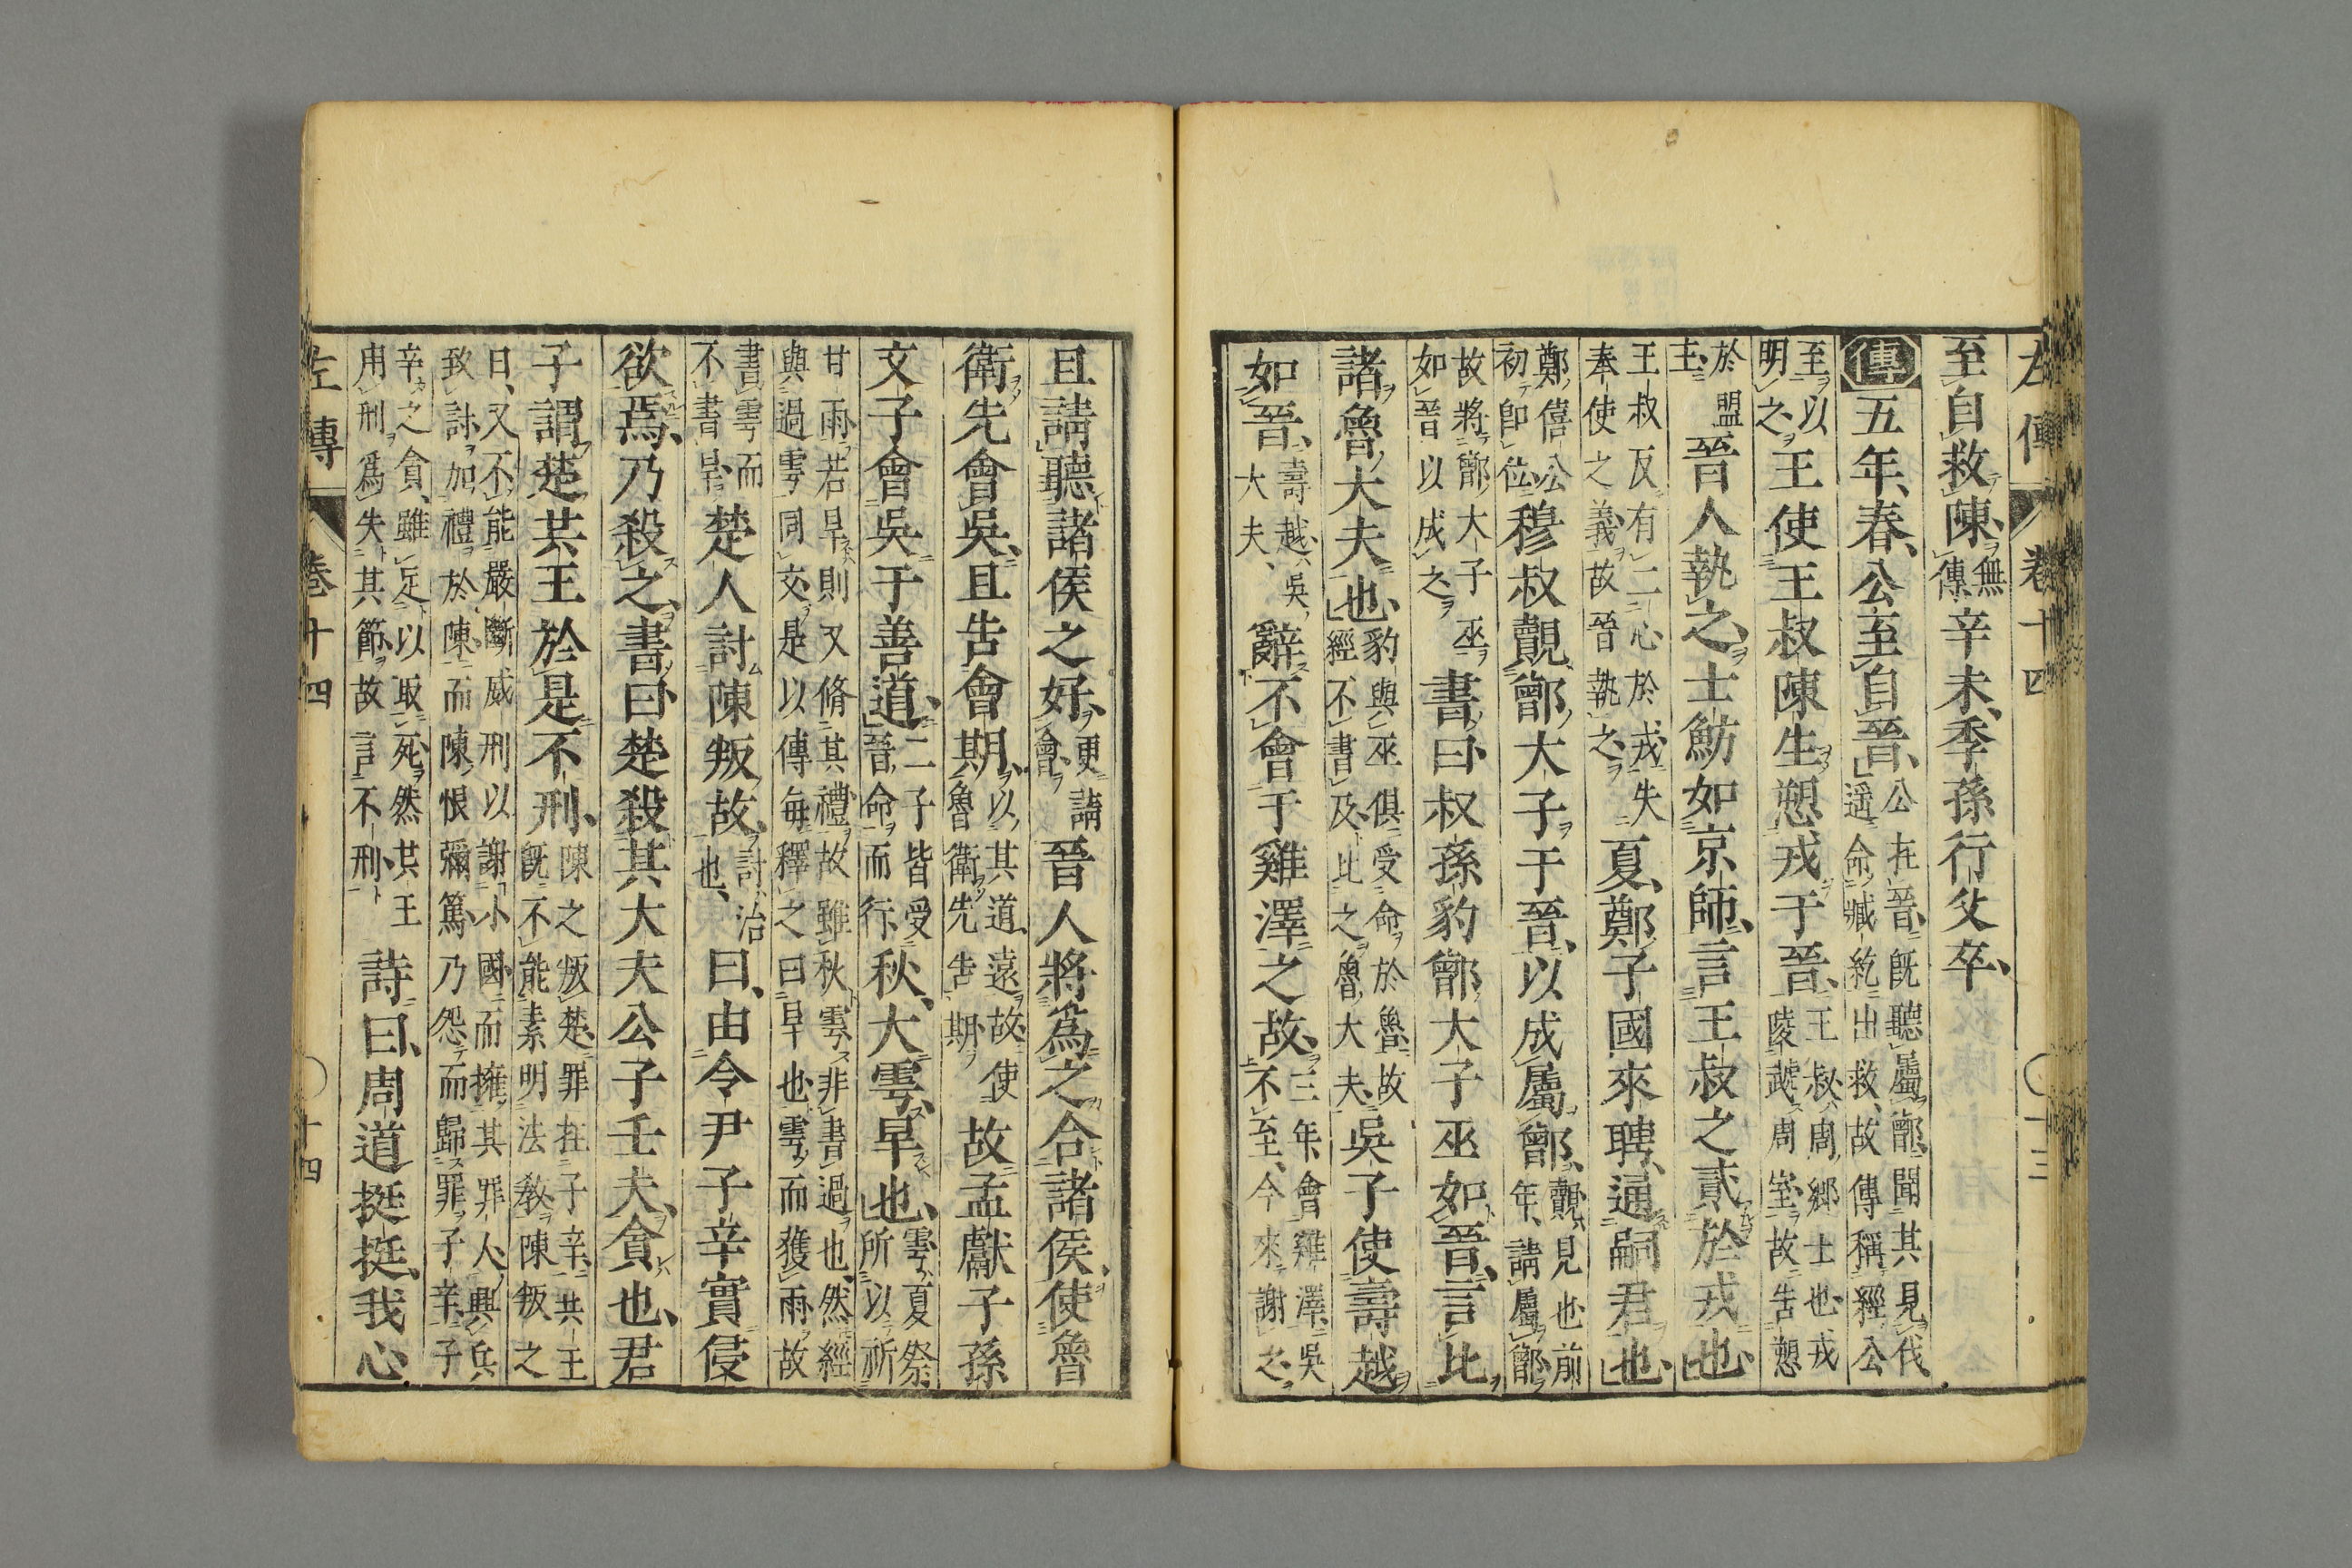 左傳 卷十四 十三
至自救陳、無傳 辛未、季孫行父卒、
傳五年、春、公至自晉、公在晉、既聽屬鄫、聞其見伐遥命臧紇出救、故傳稱經公
至以明之 王使王叔陳生愬戎于晉、王叔、周卿士也、戎陵虣周室、故告愬
於盟主 晉人執之、士魴如京師、言王叔之貳於戎也、
王叔反有二心於戎、失奉使之義、故晉執之、 夏、鄭子國來聘、通嗣君也、
鄭僖公初卽位 穆叔覿鄫大子于晉、以成屬鄫、覿、見也、前年、請屬鄫、
故將鄫大子巫如晉以成之 書曰叔孫豹鄫大子巫如晉、言比
諸魯大夫也、豹與巫俱受命於魯、故經不書及、比之魯大夫、 吳子使壽越
如晉、壽越、吳大夫、 辭不會于雞澤之故、三年、會雞澤、吳不至、今來謝之、
且請聽諸侯之好、更請會、 晉人將爲之合諸侯、使魯
衛先會吳、且告會期、以其道遠、故使魯衛先告期 故孟獻子孫
文子會吳于善道、二子皆受晉命而行、 秋、大雩、旱也、雩、夏祭、所以祈
甘雨、若旱、則又脩其禮、故雖秋雩、非書過也、然經與過雩同文、是以傳每釋之曰旱也、雩而獲雨、故
書雩而不書旱、 楚人討陳叛故、討、治也、 曰、由令尹子辛實侵
欲焉、乃殺之、書曰楚殺其大夫公子壬夫、貪也、君
子謂楚共王於是不刑、陳之叛楚、罪在子辛、共王既不能素明法教、陳叛之
日、又不能嚴斷威刑以謝小國、而擁其罪人、興兵致討、加禮於陳、而陳恨彌篤、乃怨而歸罪子辛、子
辛之貪、雖足以取死、然其王用刑爲失其節、故言不刑、 詩曰、周道挺挺、我心
左傳 卷十四 十四